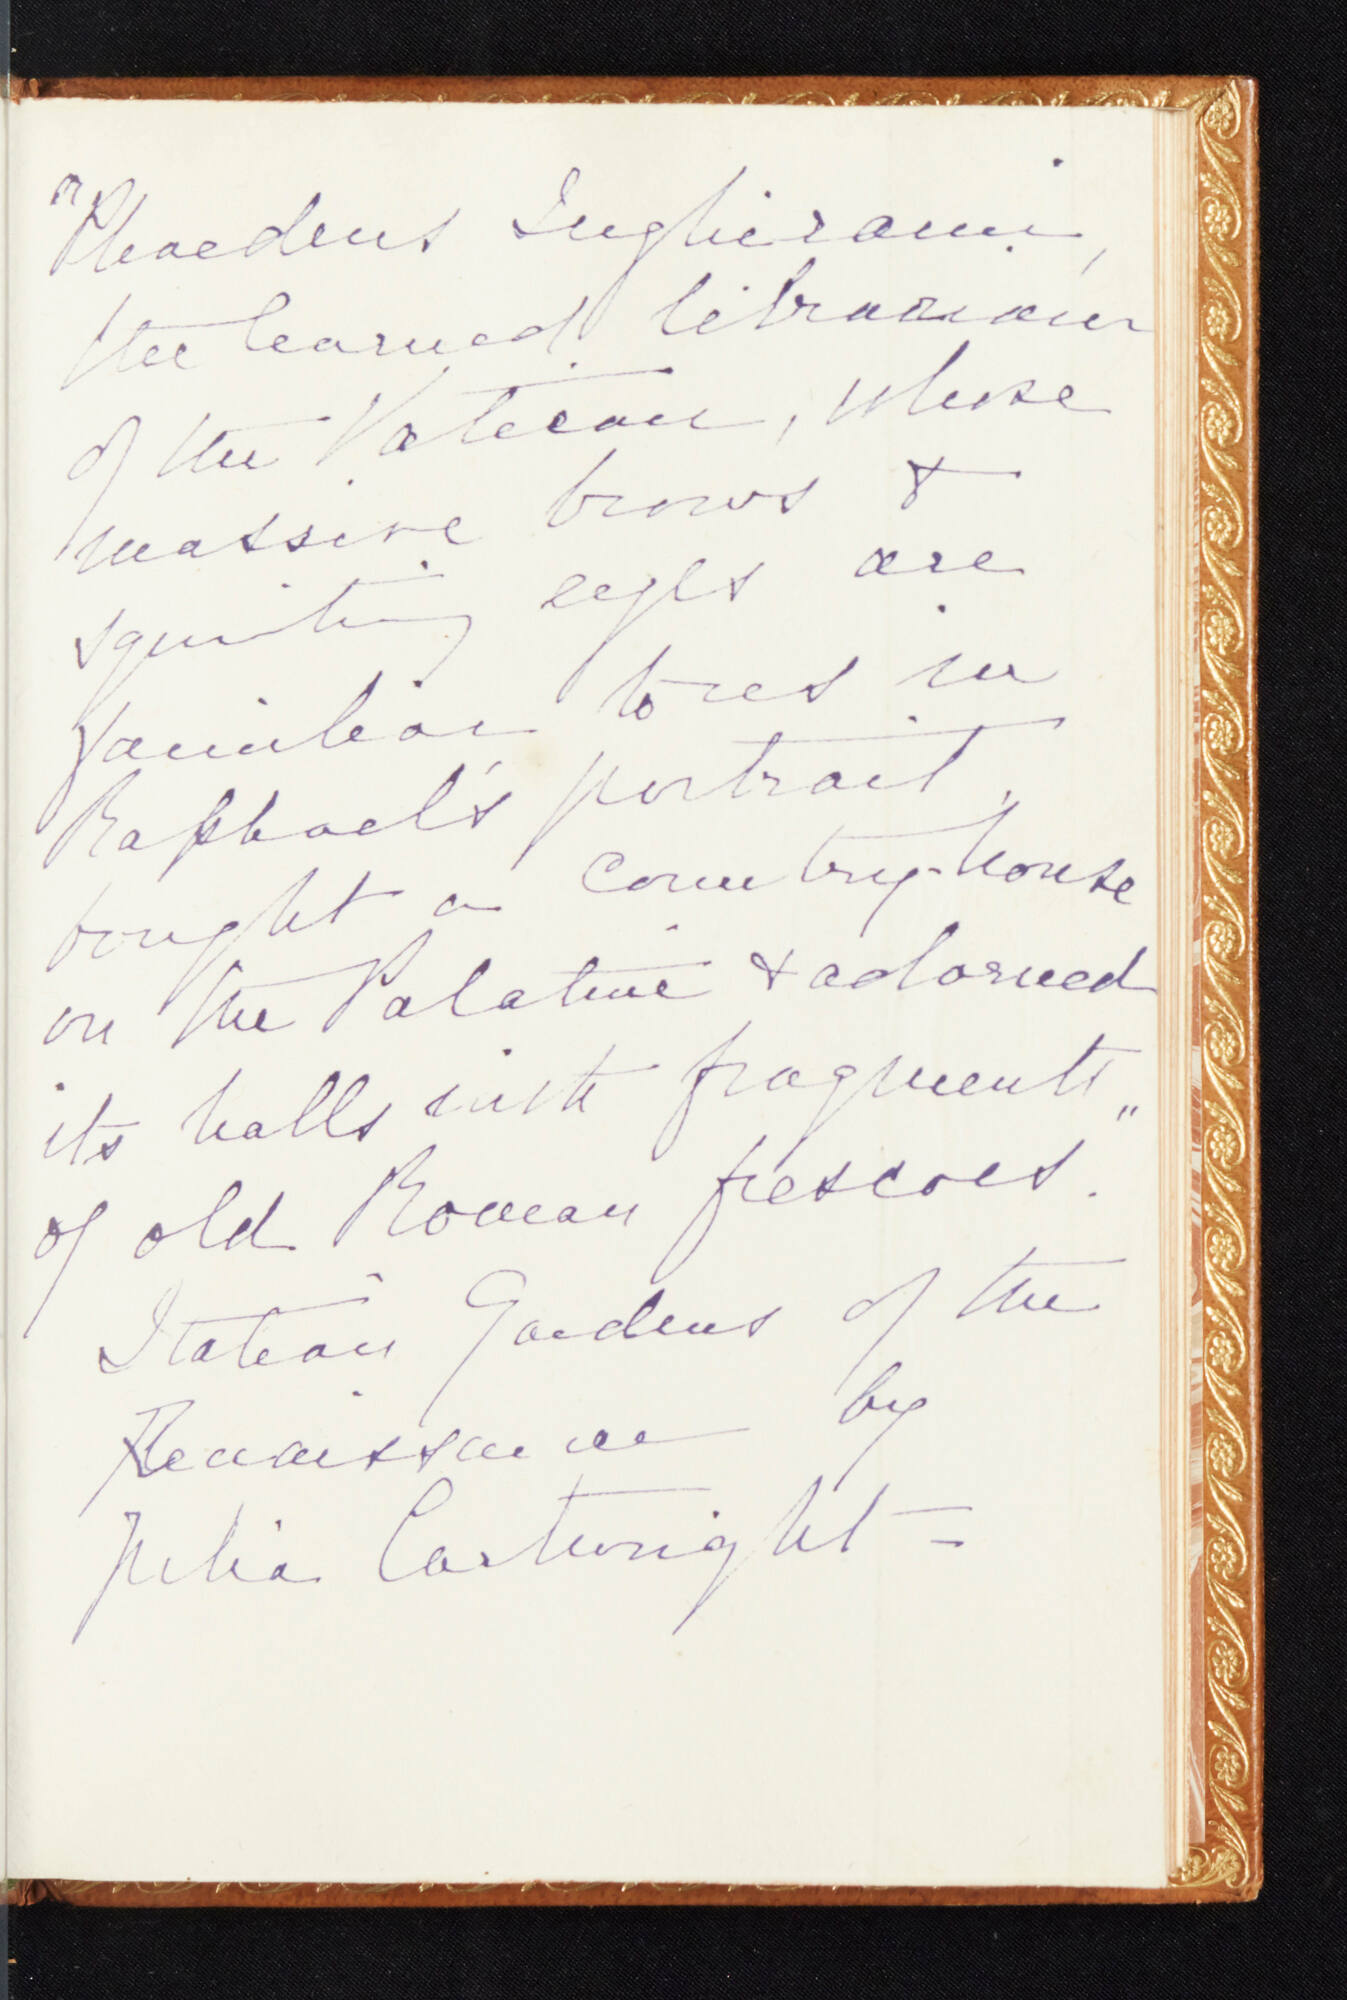 "Phaedrus Inghirami,
the learned librarian
of the Vatican, whose
massive brows &
squinting eyes are
familiar to us in
Raphael's portrait,
bought a country-house
on the Palatine & adorned
its halls with fragments
of old Roman frescoes."
Italian Gardens of the
Renaissance by
Julia Cartwright =